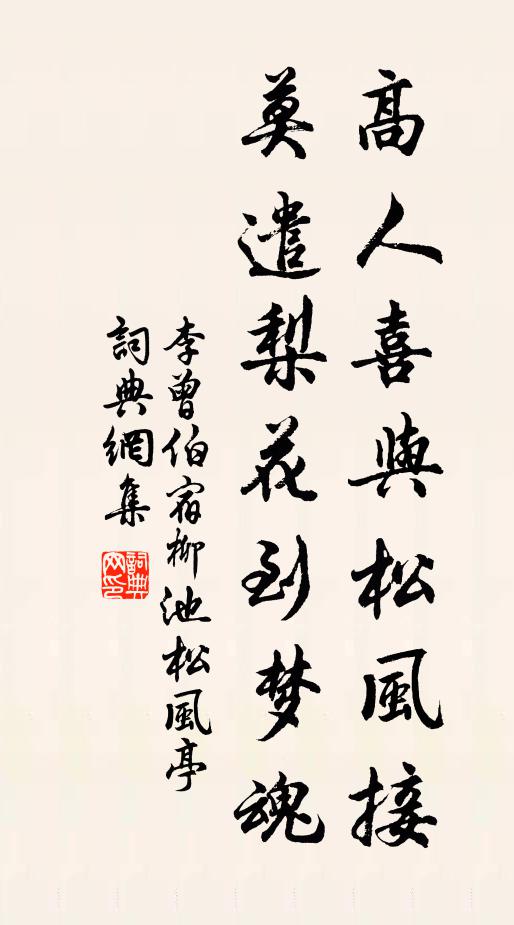 高人喜與松風接
莫遣梨花到梦魂
李曾伯宿柳池松風亭
詞典網集
詞典网印